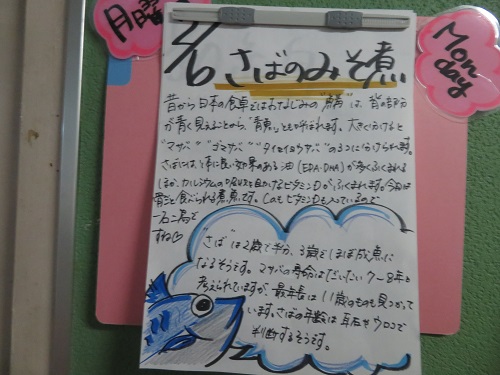 月曜
Mon
day
2/6 さばのみそ煮
昔から日本の食卓ではおなじみの"鯖"は、背の部分
が青く見えることから、"青魚"とも呼ばれます。大きく分けると
"マサバ""ゴマサバ""タイセイヨウサバ"の3つに分けられます。
さばには、体に良い効果のある油(EPA・DHA)が多くふくまれる
ほか、カルシウムの吸収を助けるビタミンDがふくまれます。今回は
骨ごと食べられる煮魚です。Caもビタミンも入っているので
一石二鳥で
すね♡
"さば"は2歳で半分、3歳でほぼ成魚に
なるそうです。マサバの寿命はだいたい7〜8年と
考えられていますが、最年長は11歳のものも見つかって
います。さばの年齢は耳石やウロコで
判断するそうです。